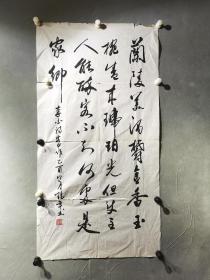 蘭陵美酒鬱金香玉
椀盛來琥珀光但使主
人能醉客不知何處是
家鄉